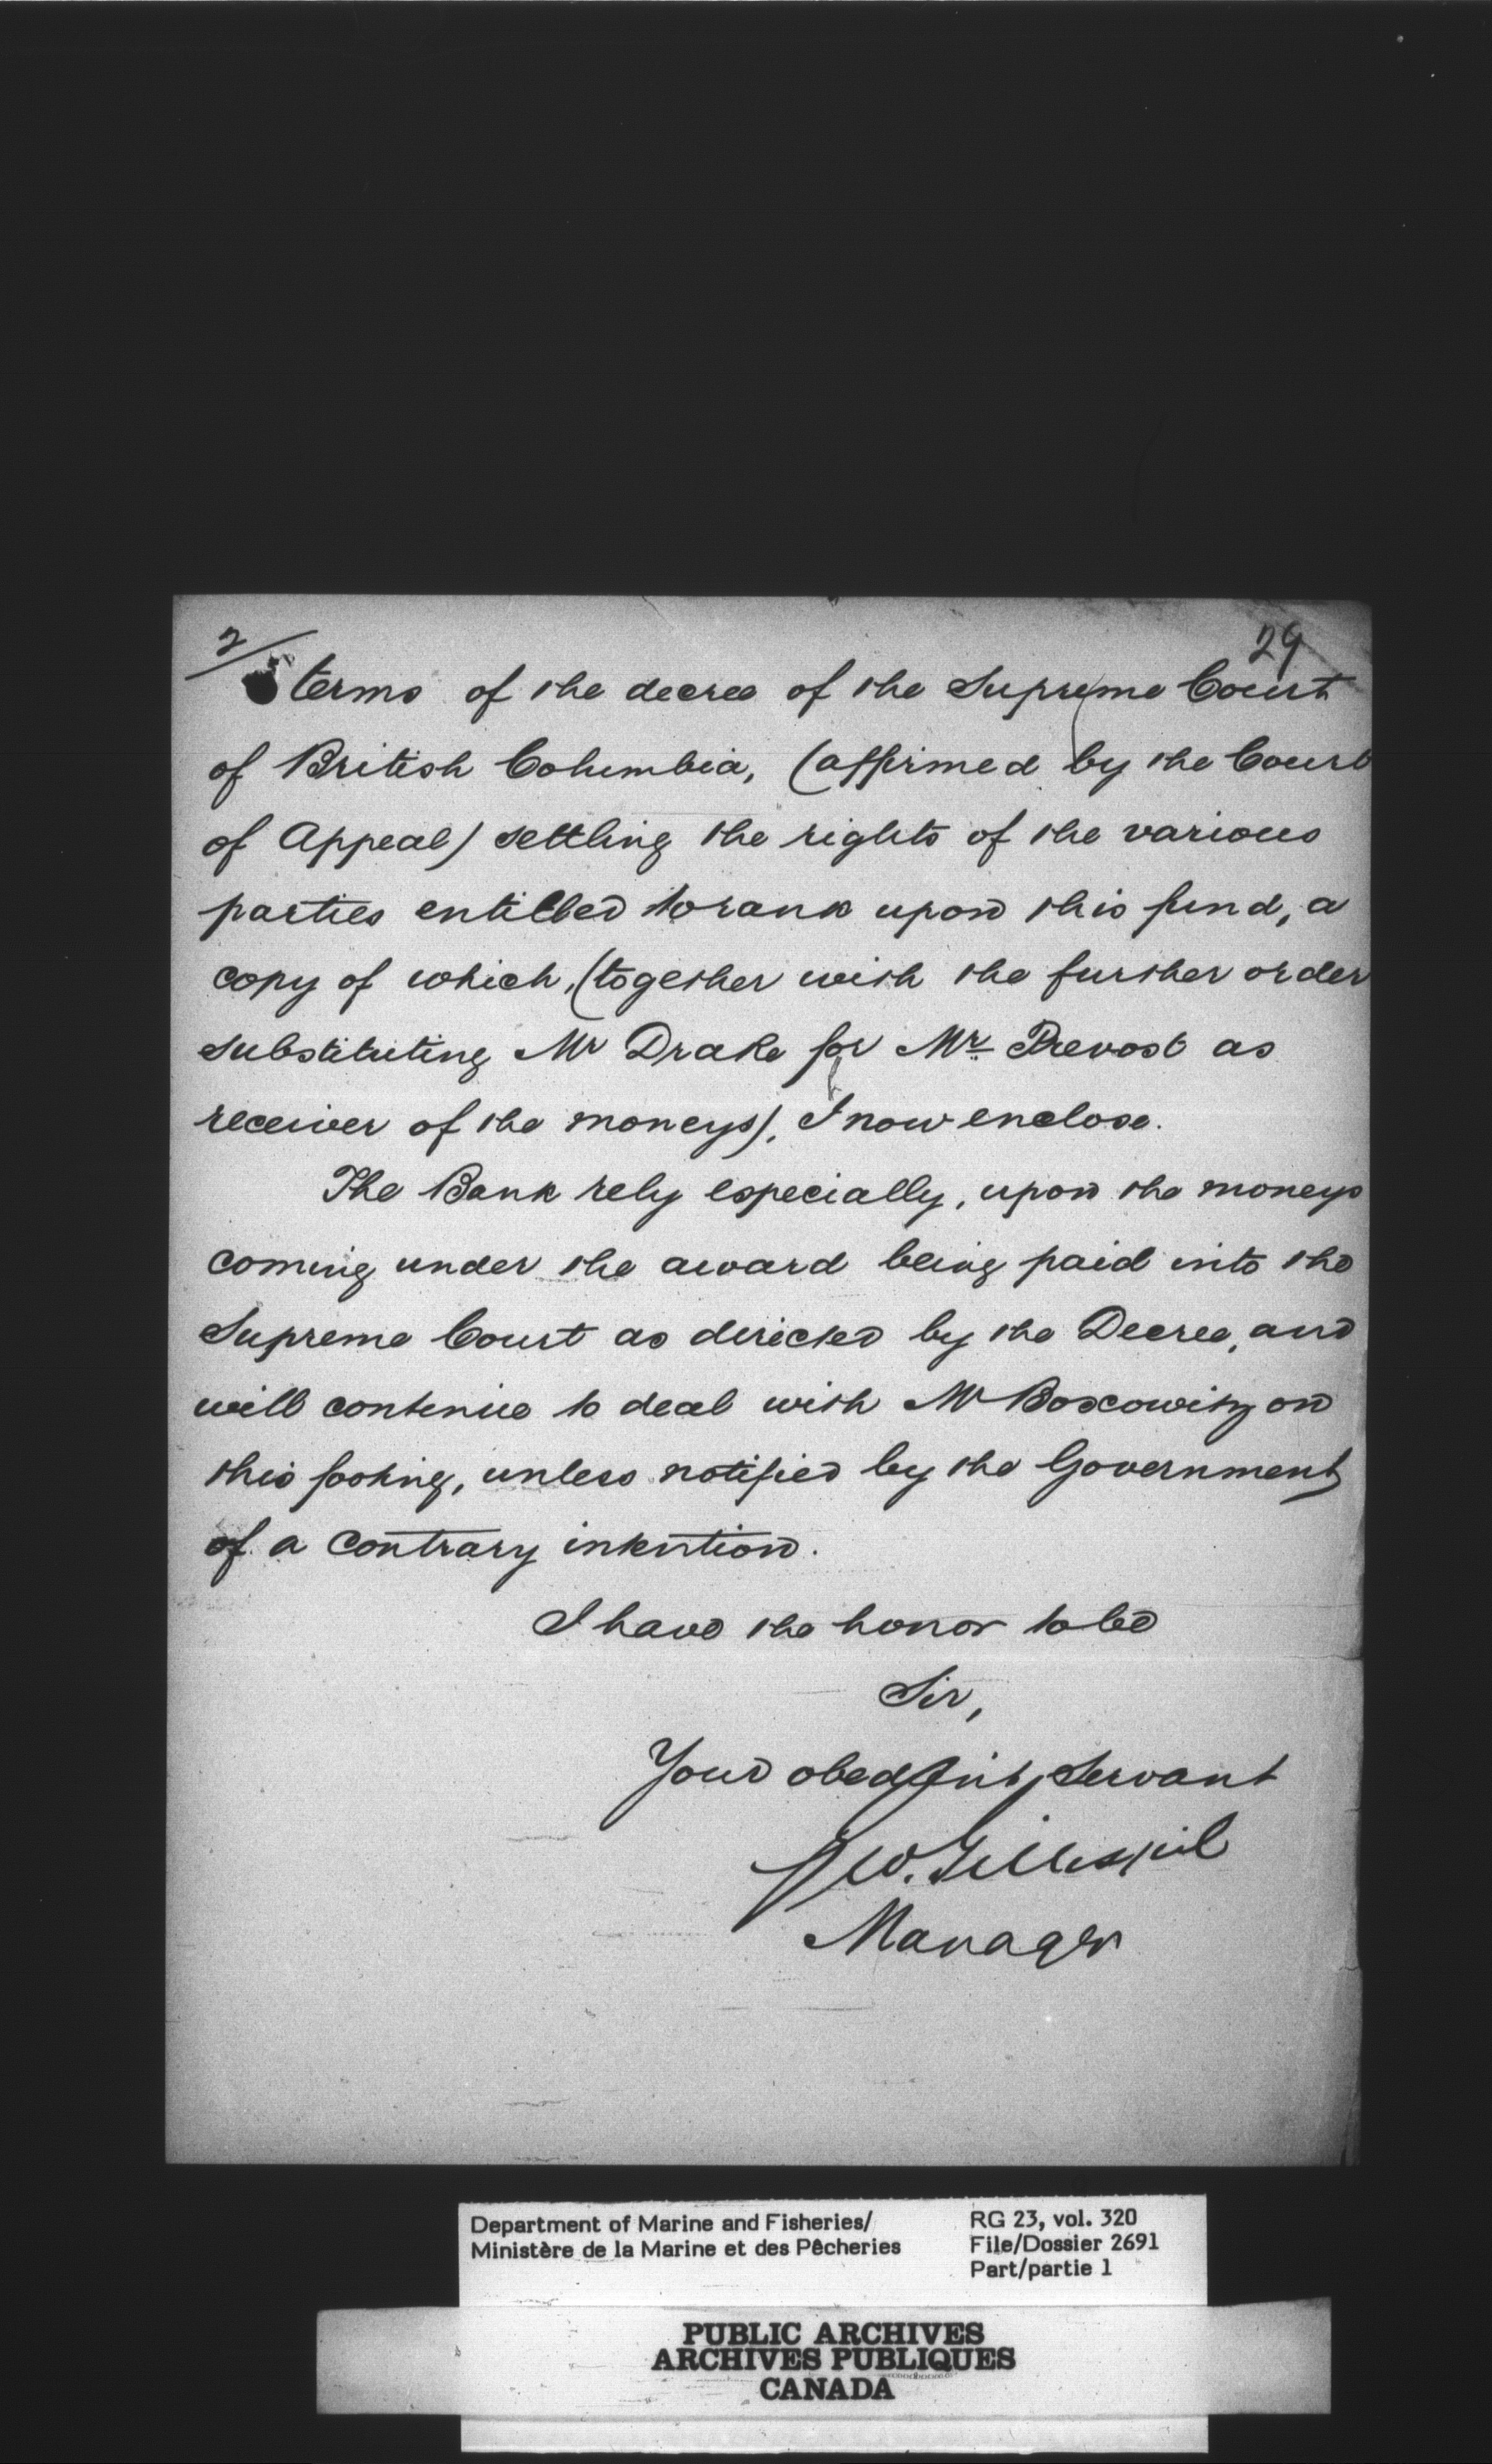 2/
29
terms of the decree of the Supreme Court
of British Columbia, (affirmed by the Court
of Appeal) settling the rights of the various
parties entitled to rank upon this fund, a
copy of which, (together with the further order
substituting Mr Drake for Mr. Prevost as
receiver of the moneys), I now enclose.
The Bank rely especially, upon the moneys
coming under the award being paid into the
Supreme Court as directed by the Decree, and
will continue to deal with Mr Boscowitz on
this footing, unless notified by the Government
of a contrary intention.
I have the honor to be
Sir,
Your obedient servant
W. Gillespie
Manager
Department of Marine and Fisheries/
Ministère de la Marine et des Pêcheries
RG 23, vol. 320
File/Dossier 2691
Part/partie 1
PUBLIC ARCHIVES
ARCHIVES PUBLIQUES
CANADA